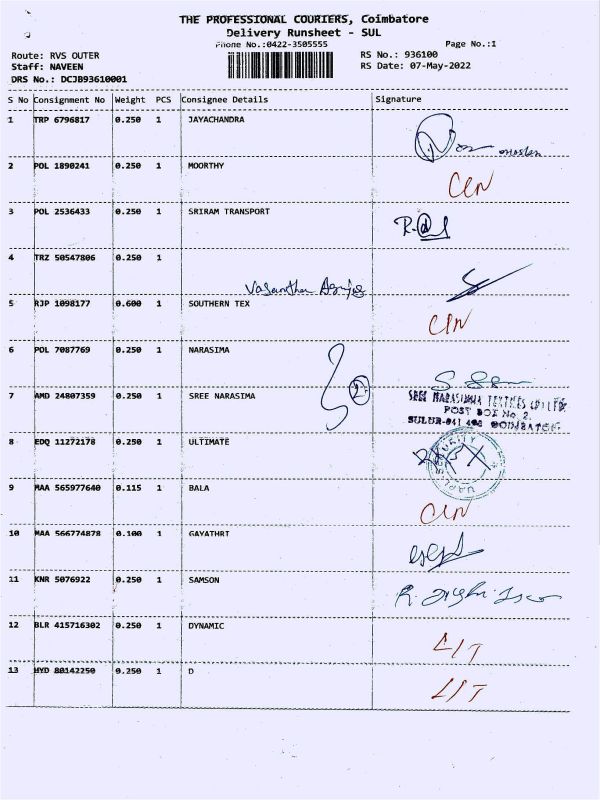 THE PROFESSIONAL COURIERS, Coimbatore
Delivery Runsheet - SUL
Phone No.:0422-3505555
Page No.:1
Route: RVS OUTER
RS No.: 936100
Staff: NAVEEN
RS Date: 07-May-2022
DRS No.: DCJB93610001
S No Consignment No Weight PCS Consignee Details Signature
1 TRP 6796817 0.250 1 JAYACHANDRA
2 POL 1890241 0.250 1 MOORTHY
3 POL 2536433 0.250 1 SRIRAM TRANSPORT
4 TRZ 50547806 0.250 1
5 RJP 1098177 0.600 1 SOUTHERN TEX
6 POL 7087769 0.250 1 NARASIMA
7 AMD 24807359 0.250 1 SREE NARASIMA
2
SREE NARASIMHA TEXTILES (P) LTD.
POST BOX No 2.
SULUR-641 402 COIMBATORE
8 EDQ 11272178 0.250 1 ULTIMATE
SECURITY
9 MAA 565977640 0.115 1 BALA
10 MAA 566774878 0.100 1 GAYATHRI
11 KNR 5076922 0.250 1 SAMSON
12 BLR 415716302 0.250 1 DYNAMIC
13 HYD 80142250 0.250 1 D